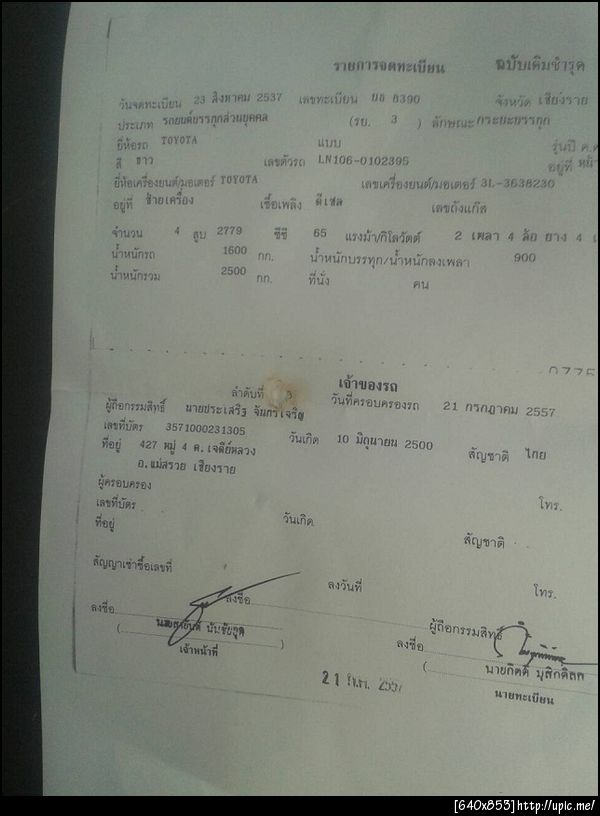 รายการจดทะเบียน ฉบับเดิมชำรุด
วันจดทะเบียน 23 สิงหาคม 2537 เลขทะเบียน ยธ 8390 จังหวัด เชียงราย
ประเภท รถยนต์บรรทุกส่วนบุคคล (รย. 3 ) ลักษณะ กระบะบรรทุก
ยี่ห้อรถ TOYOTA แบบ รุ่นปี ค.ศ
สี ขาว เลขตัวรถ LN106-0102395 อยู่ที่ หน้า
ยี่ห้อเครื่องยนต์/มอเตอร์ TOYOTA เลขเครื่องยนต์/มอเตอร์ 3L-3638230
อยู่ที่ ซ้ายเครื่อง เชื้อเพลิง ดีเซล เลขถังแก๊ส
จำนวน 4 สูบ 2779 ซีซี 65 แรงม้า/กิโลวัตต์ 2 เพลา 4 ล้อ ยาง 4 เ
น้ำหนักรถ 1600 กก. น้ำหนักบรรทุก/น้ำหนักลงเพลา 900
น้ำหนักรวม 2500 กก. ที่นั่ง คน
เจ้าของรถ
ลำดับที่ 3 วันที่ครอบครองรถ 21 กรกฎาคม 2557
ผู้ถือกรรมสิทธิ์ นายประเสริฐ จันทร์เจริญ
เลขที่บัตร 3571000231305 วันเกิด 10 มิถุนายน 2500 สัญชาติ ไทย
ที่อยู่ 427 หมู่ 4 ต.เจดีย์หลวง
อ.แม่สรวย เชียงราย
ผู้ครอบครอง โทร.
เลขที่บัตร วันเกิด สัญชาติ
ที่อยู่
สัญญาเช่าซื้อเลขที่ ลงวันที่ โทร.
ลงชื่อ ผู้ถือกรรมสิทธิ์
ลงชื่อ ลงชื่อ
( ) ( นายกิตติ มุสิกดิลก
เจ้าหน้าที่ นายทะเบียน
21 2557
[640x853]http://upic.me/